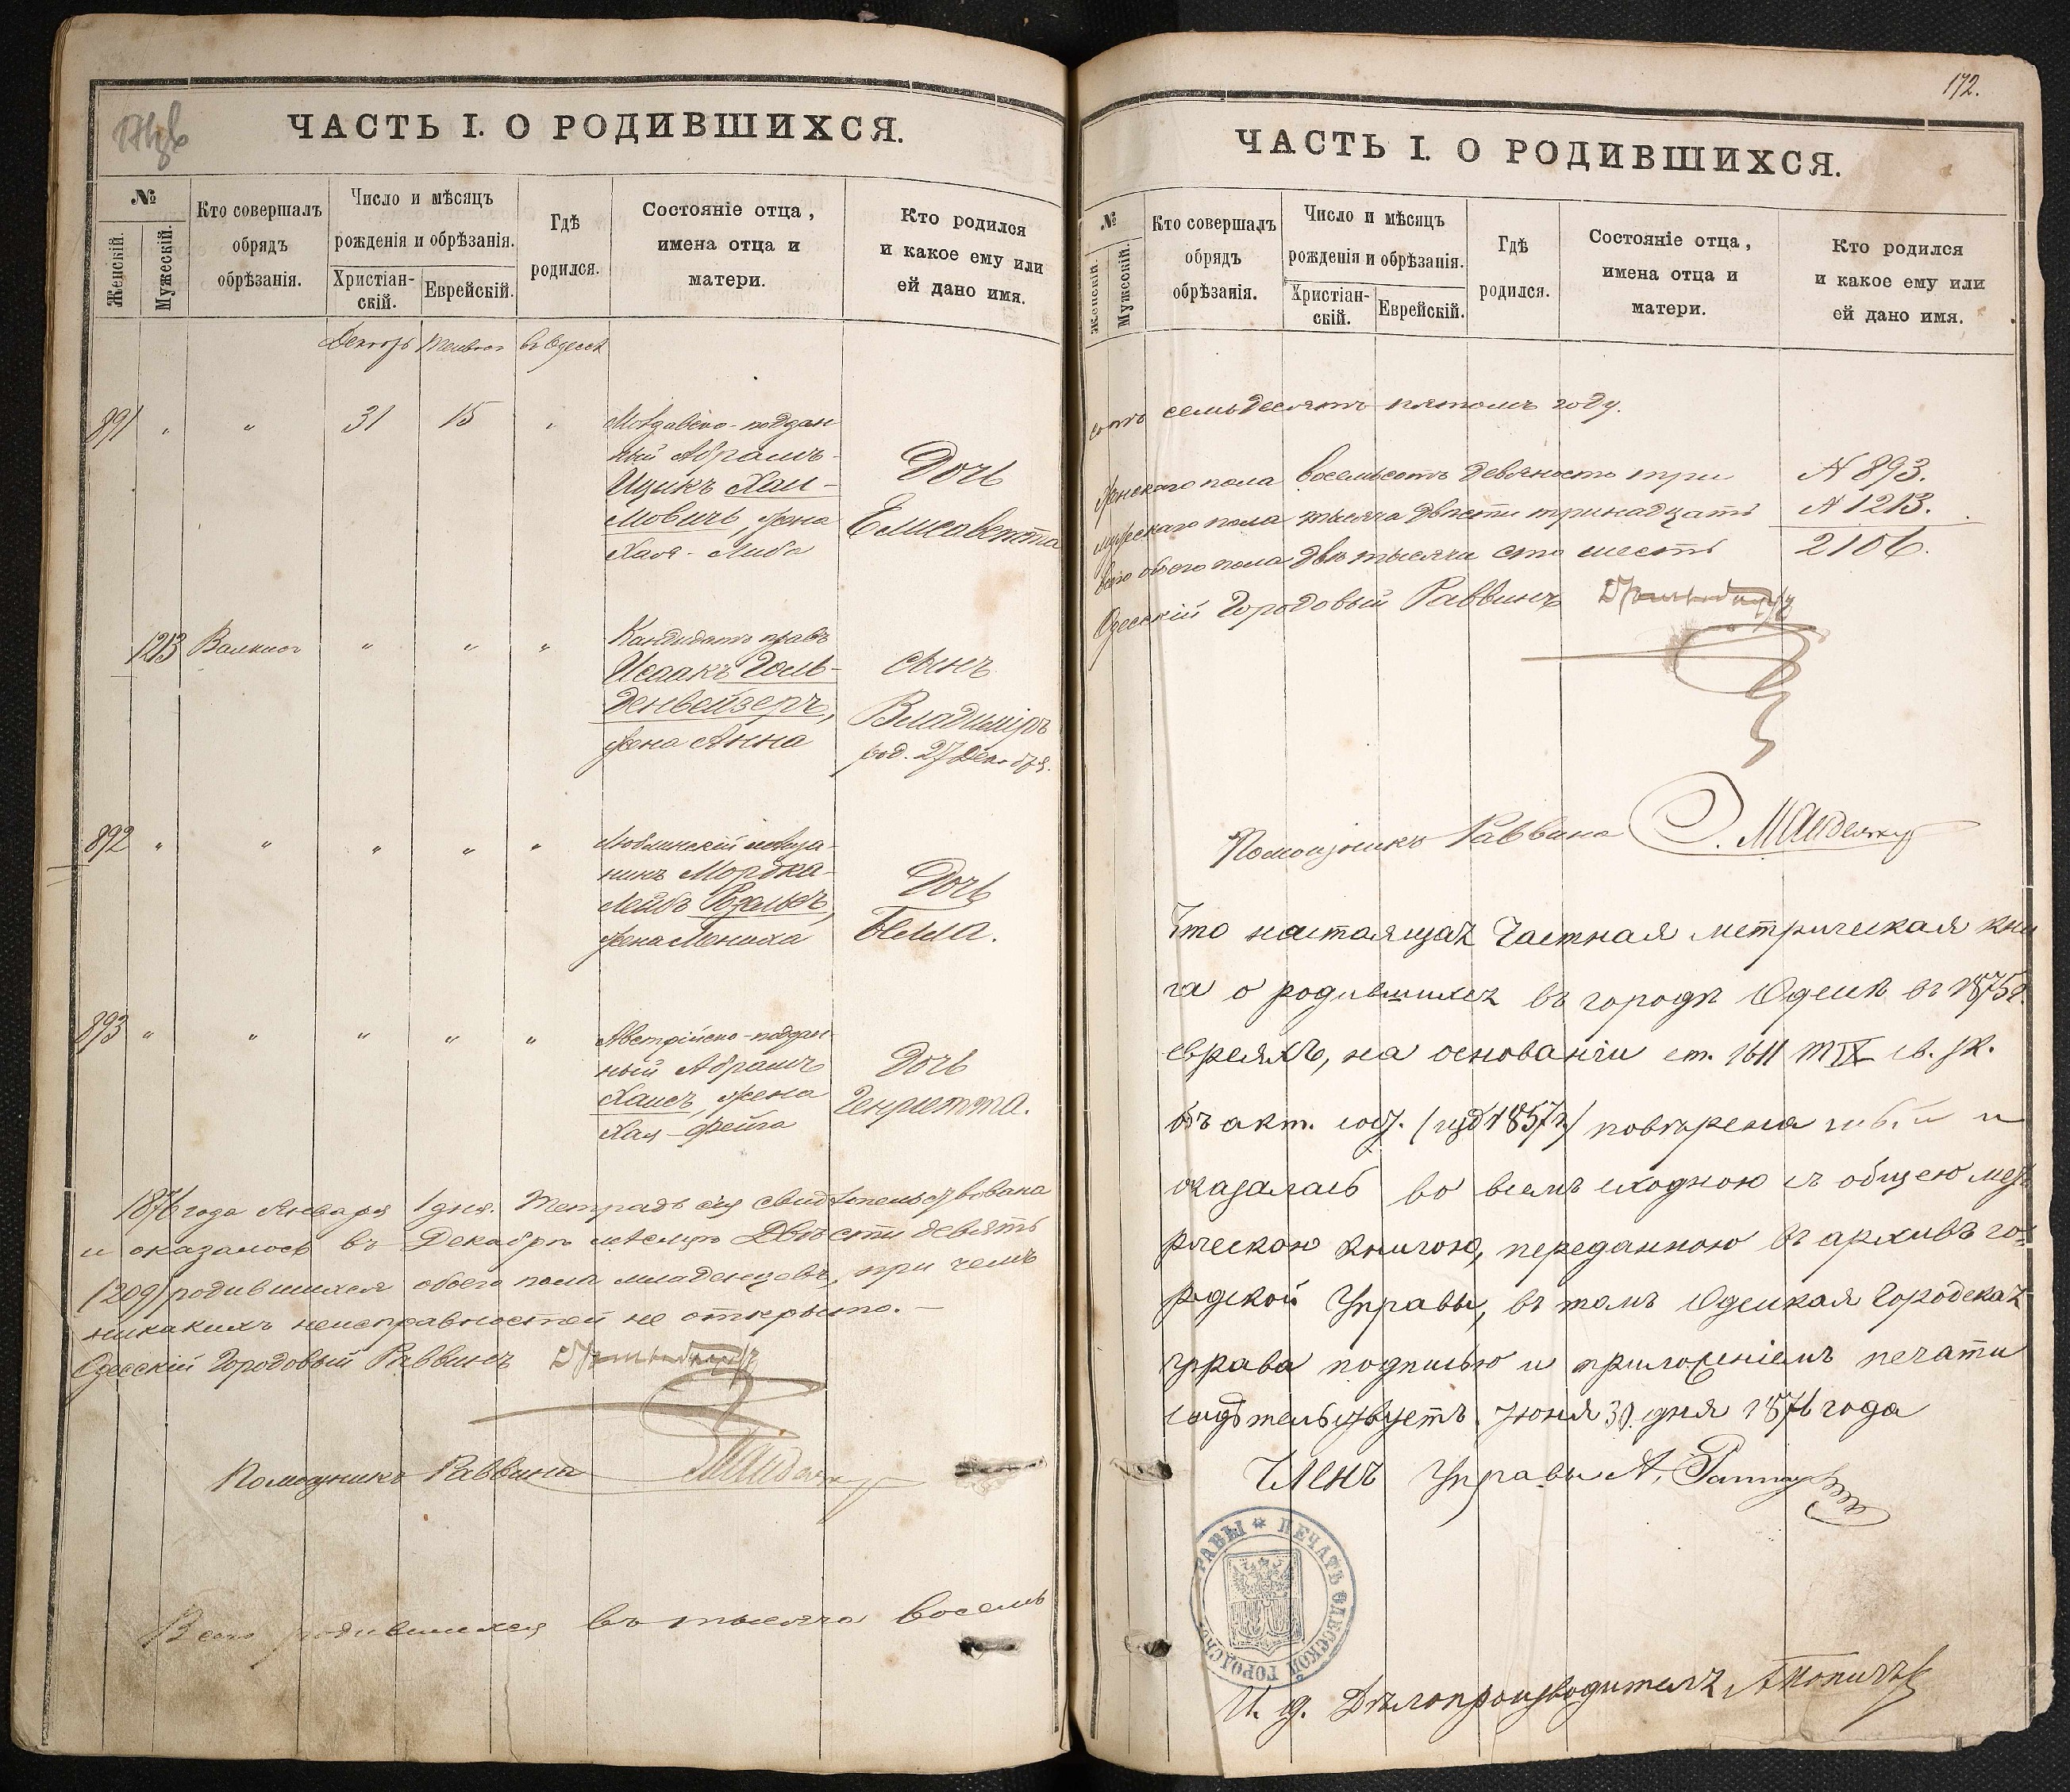 ЧАСТЬ I. О РОДИВШИХСЯ.
№
Женскій.
Мужескій.
Кто совершалъ
обрядъ
обрѣзанія.
Число и мѣсяцъ
рожденія и обрѣзанія.
Христіан-
скій.
Еврейскій.
Гдѣ
родился.
Состояніе отца,
имена отца и
матери.
Кто родился
и какое ему или
ей дано имя.
въ Одессѣ
891 " " 31 15 "
Молдавско-поддан
ный Абрамъ-
Ицикъ Хаи-
мовичъ, жена
Хая-Либа
Дочь
Елисаветта
1213 " " "
Кандидатъ правъ
Исаакъ Голь-
денвейзеръ,
жена Анна
сынъ
Владиміръ
род. 27 Декабря.
892 " " " " "
Люблинскій мѣща-
нинъ Мордка-
Лейбъ
жена Мениха
Дочь
Белла.
893 " " " " "
Австрійско-поддан-
ный Абрамъ
Хаисъ, жена
Хая-Фейга
Дочь
Генриетта.
1876 года Января 1 дня. Тетрадь сія свидѣтельствована
и оказалось въ Декабрѣ мѣсяцѣ Двѣсти девять
(209) родившихся обоего пола младенцевъ, при чемъ
никакихъ неисправностей не открыто.-
Одесскій Городовый Раввинъ
Помощникъ Раввина
Всего родившихся въ тысяча восемь
172.
ЧАСТЬ I. О РОДИВШИХСЯ.
№
Женскій.
Мужескій.
Кто совершалъ
обрядъ
обрѣзанія.
Число и мѣсяцъ
рожденія и обрѣзанія.
Христіан-
скій.
Еврейскій.
Гдѣ
родился.
Состояніе отца,
имена отца и
матери.
Кто родился
и какое ему или
ей дано имя.
сотъ семьдесятъ пятомъ году.
женскаго пола восемьсотъ девяносто три № 893.
мужескаго пола тысяча двѣсти тринадцать № 1213.
всего обоего пола двѣ тысячи сто шесть 2106.
Одесскій Городовый Раввинъ
Помощникъ Раввина
Что настоящая Частная метрическая кни
га о родившихся въ городѣ Одессѣ въ 1875 г.
евреяхъ, на основаніи ст. 1611 т IX св. зак.
объ акт. сост. (изд 1857 г) повѣрена и
оказалась во всемъ сходною съ общею мет
рическою книгою, переданною въ архивъ го-
родской Управы, въ томъ Одесская Городская
Управа подписью и приложеніемъ печати
свидѣтельствуетъ. Іюня 30 дня 1876 года
Членъ Управы А.
ПЕЧАТЬ ОДЕССКОЙ ГОРОДСК. УПРАВЫ
И. д. Дѣлопроизводителя